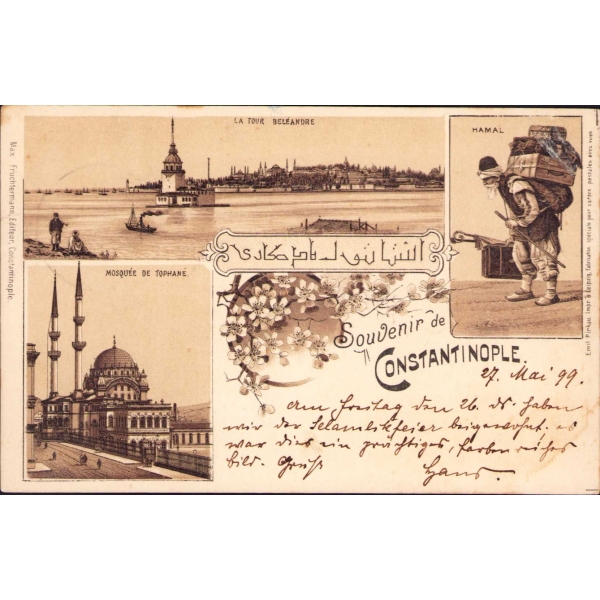 LA TOUR BELÉANDRE
HAMAL
MOSQUÉE DE TOPHANÉ
Max Fruchtermann, Editeur, Constantinople.
Souvenir de
CONSTANTINOPLE.
27. Mai 99.
Am Freitag den 26. ds. haben
wir der Selamlikfeier beigewohnt. es
war dies ein prächtiges, farbenreiches
bild. Gruß
Hans.
Emil Pinkau, Leipzig